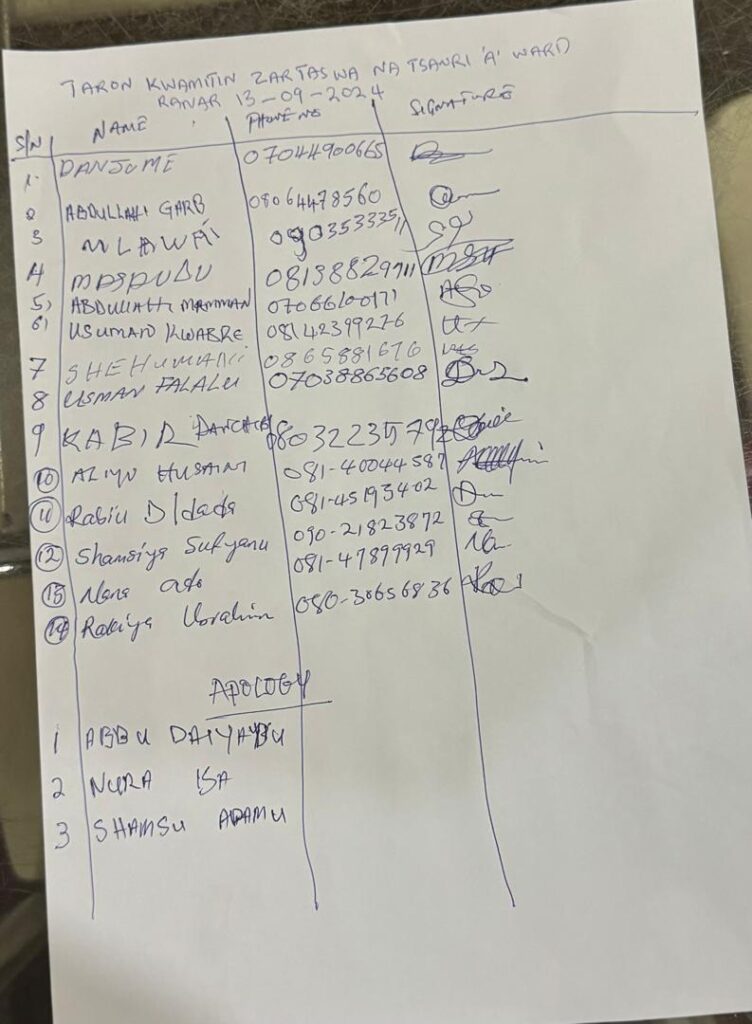 TARON KWAMITIN ZARTASWA NA TSAURI 'A' WARD
RANAR 13-09-2024
S/N NAME PHONE NO SIGNATURE
1. DANJUME 07044900665
2 ABDULLAHI GARB 08064478560
3 MLAWAI 0903533351
4 MASAUDU 08138829711
5, ABDULLAHI MAMMAN 07066100171
6, USUMAN KWABRE 08142399276
7 SHEHU 0865881676
8 USMAN FALALU 07038865608
9 KABIR 0803223579
10 ALIYU HUSAINI 081-40044587
11 Rabiu D/dada 081-45193402
12 Shamsiya Sufyanu 090-21823872
13 Nana ado 081-47899929
14 Rakiya Ibrahim 080-30656836
APOLOGY
1 ABBU DAIYABU
2 NURA ISA
3 SHAMSU ADAMU